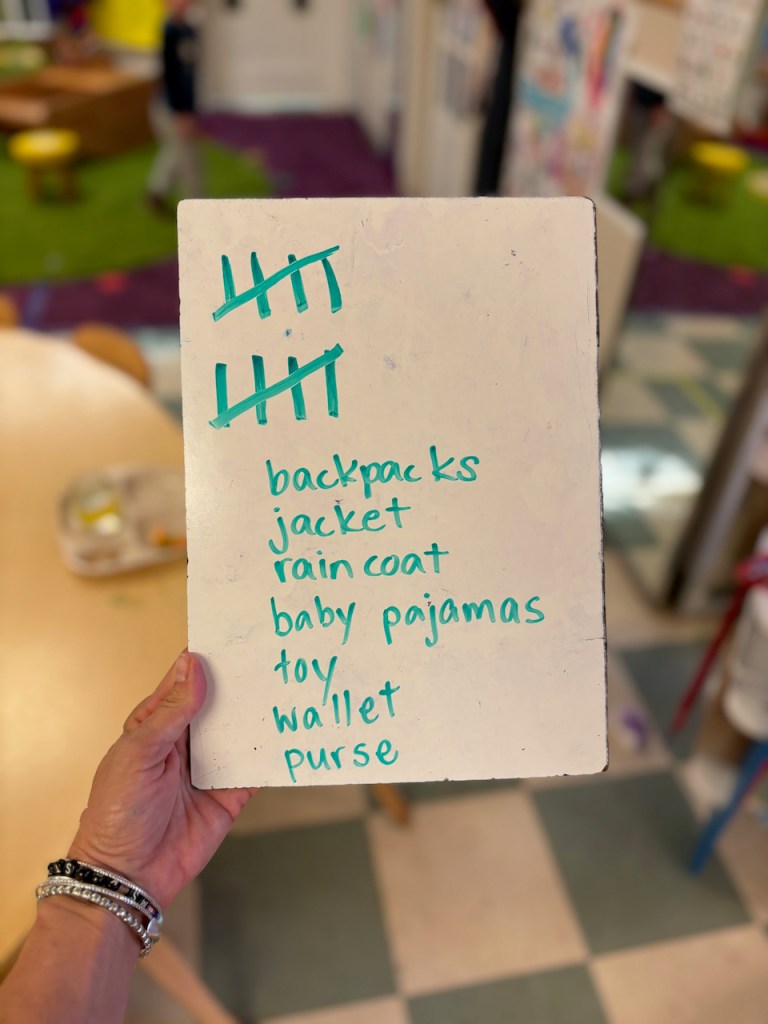 backpacks
jacket
rain coat
baby pajamas
toy
wallet
purse